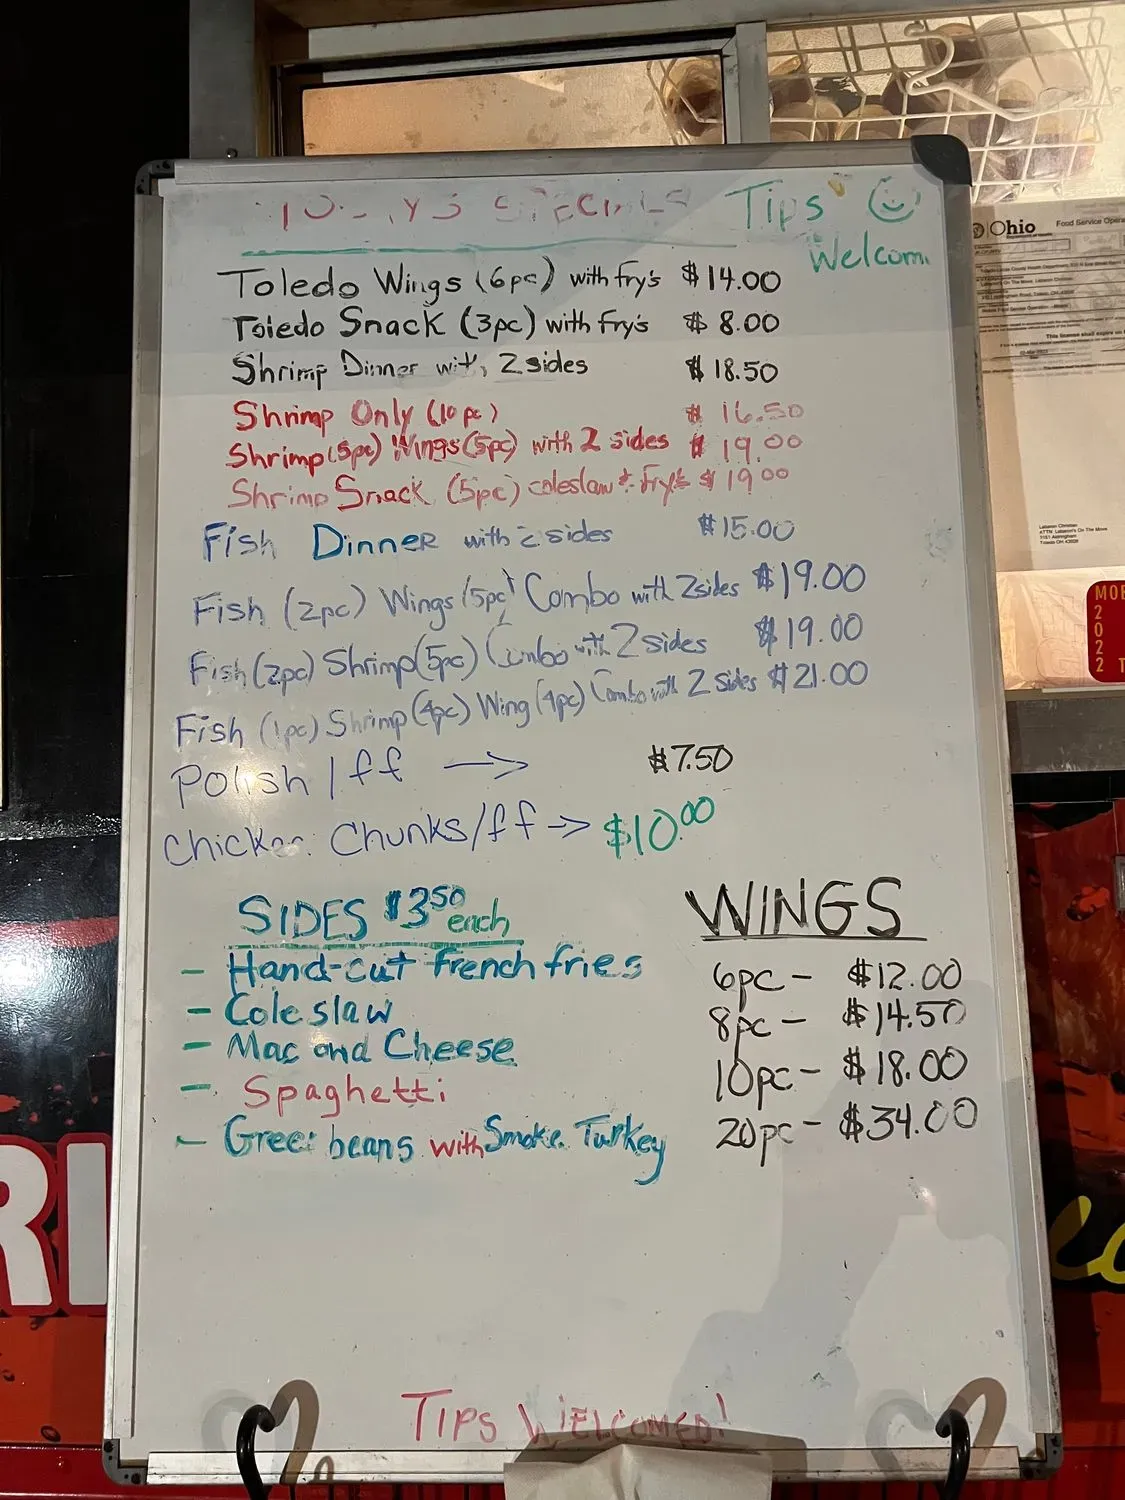 SPECIALS Tips
Welcom
Toledo Wings (6pc) with fry's $14.00
Toledo Snack (3pc) with fry's $8.00
Shrimp Dinner with 2 sides $18.50
Shrimp Only (10pc) $16.50
Shrimp (5pc) Wings (5pc) with 2 sides $19.00
Shrimp Snack (5pc) coleslaw & Fry's $19.00
Fish Dinner with 2 sides $15.00
Fish (2pc) Wings (5pc) Combo with 2 sides $19.00
Fish (2pc) Shrimp (5pc) Combo with 2 sides $19.00
Fish (1pc) Shrimp (4pc) Wing (4pc) Combo with 2 sides $21.00
Polish/ff → $7.50
Chicken Chunks/ff → $10.00
SIDES $3.50 each
- Hand-cut french fries
- Coleslaw
- Mac and Cheese
- Spaghetti
- Green beans with Smoke Turkey
WINGS
6pc - $12.00
8pc - $14.50
10pc - $18.00
20pc - $34.00
TIPS WELCOMED!
Ohio
Food Service Opera
Lebanon Christian
ATTN: Lebanon's On The Move
Toledo OH
MOB
2
0
2
2 T
RI